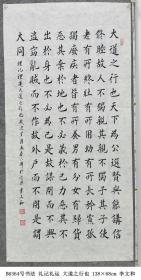 大道之行也天下為公選賢與能講信
修睦故人不獨親其親不獨子其子使
老有所終壯有所用幼有所長矜寡孤
獨廢疾者皆有所養男有分女有歸貨
惡其棄於地也不必藏於己力惡其不
出於身也不必為己是故謀閉而不興
盜竊亂賊而不作故外戶而不閉是謂
大同
B6364号书法 礼记礼运 大道之行也 138×68cm 李文和